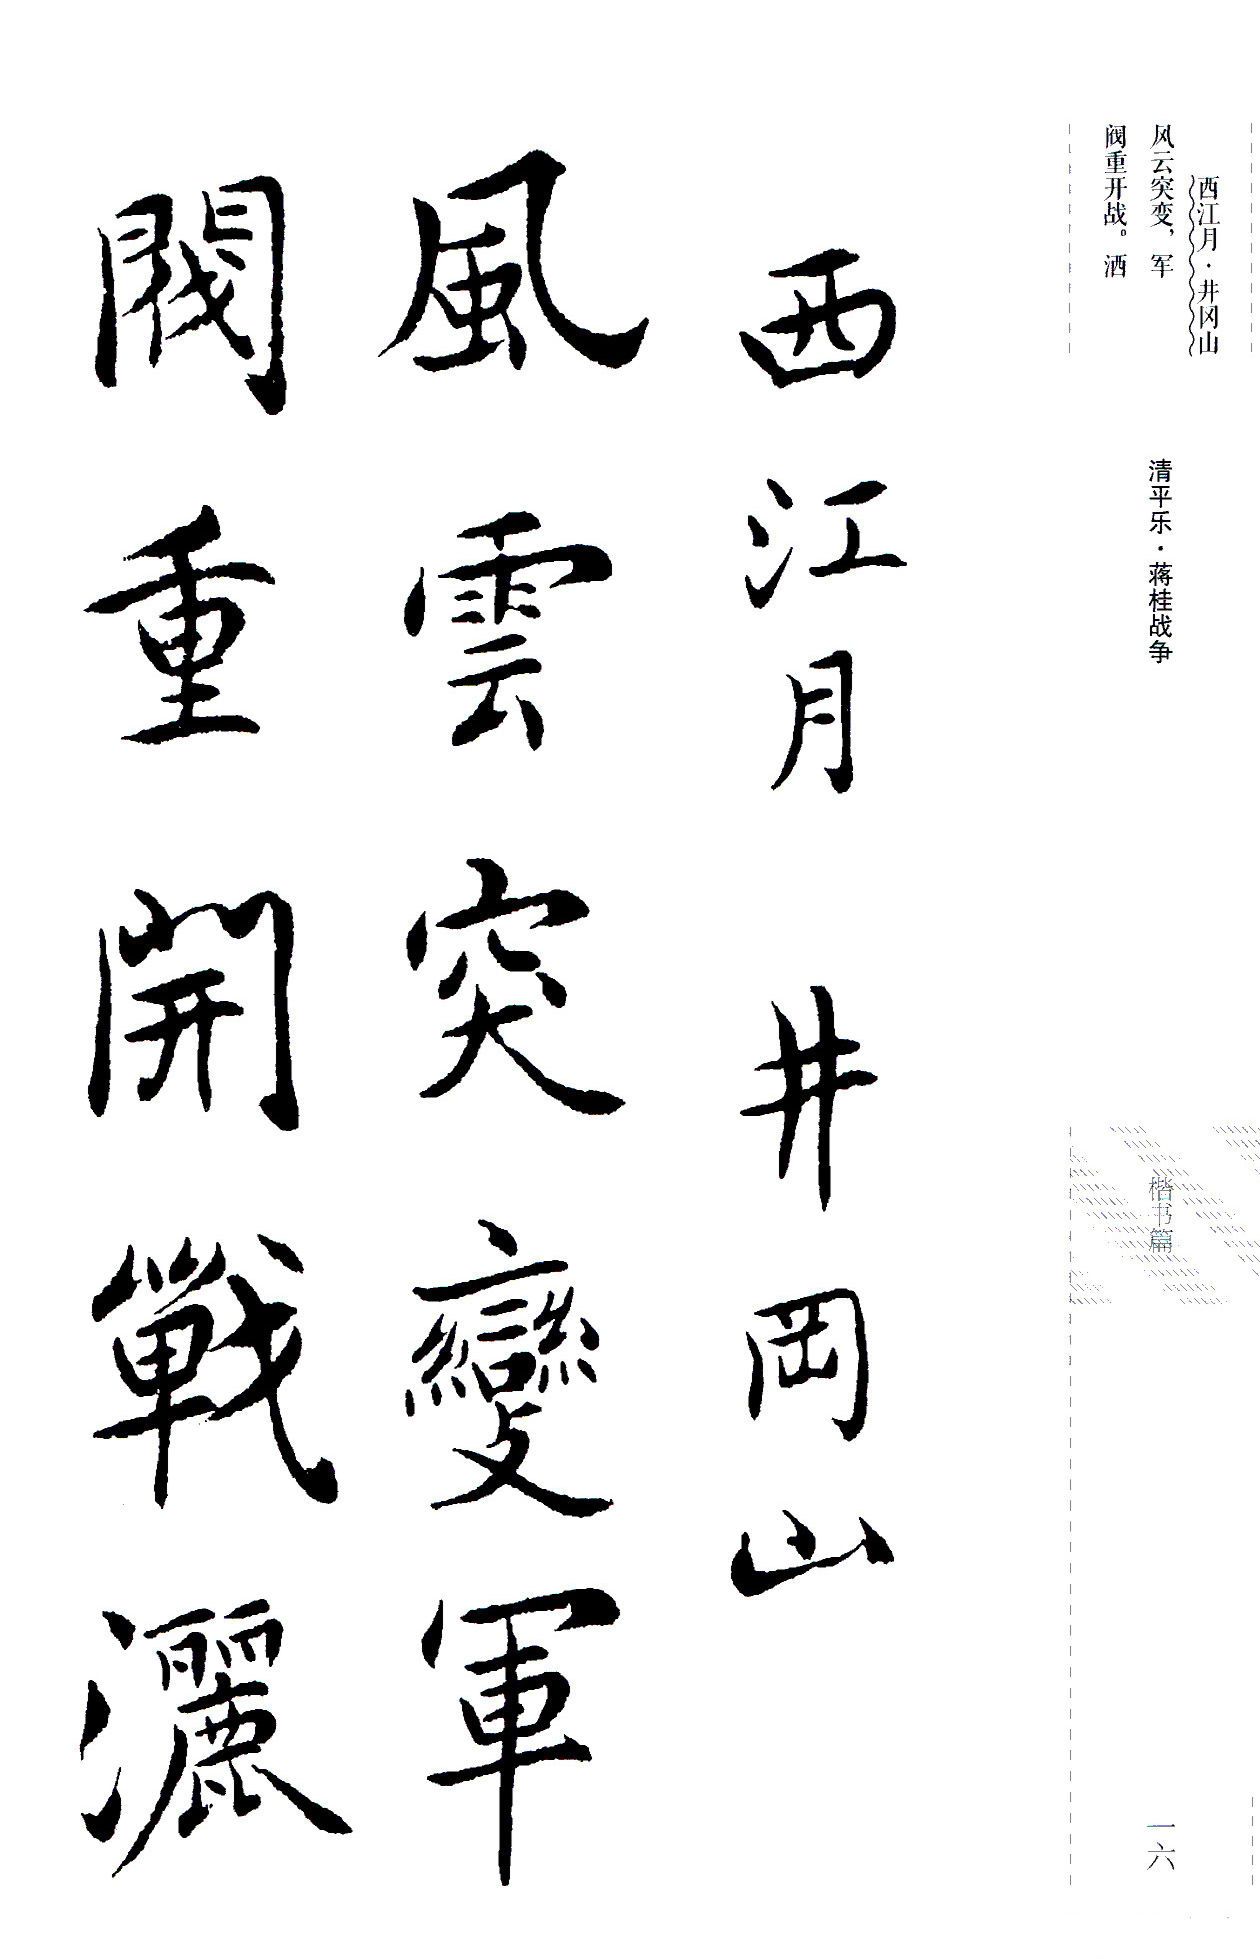 西江月·井冈山
风云突变，军
阀重开战。洒
清平乐·蒋桂战争
楷书篇
一六
西江月 井岡山
風雲突變軍
閥重開戰灑